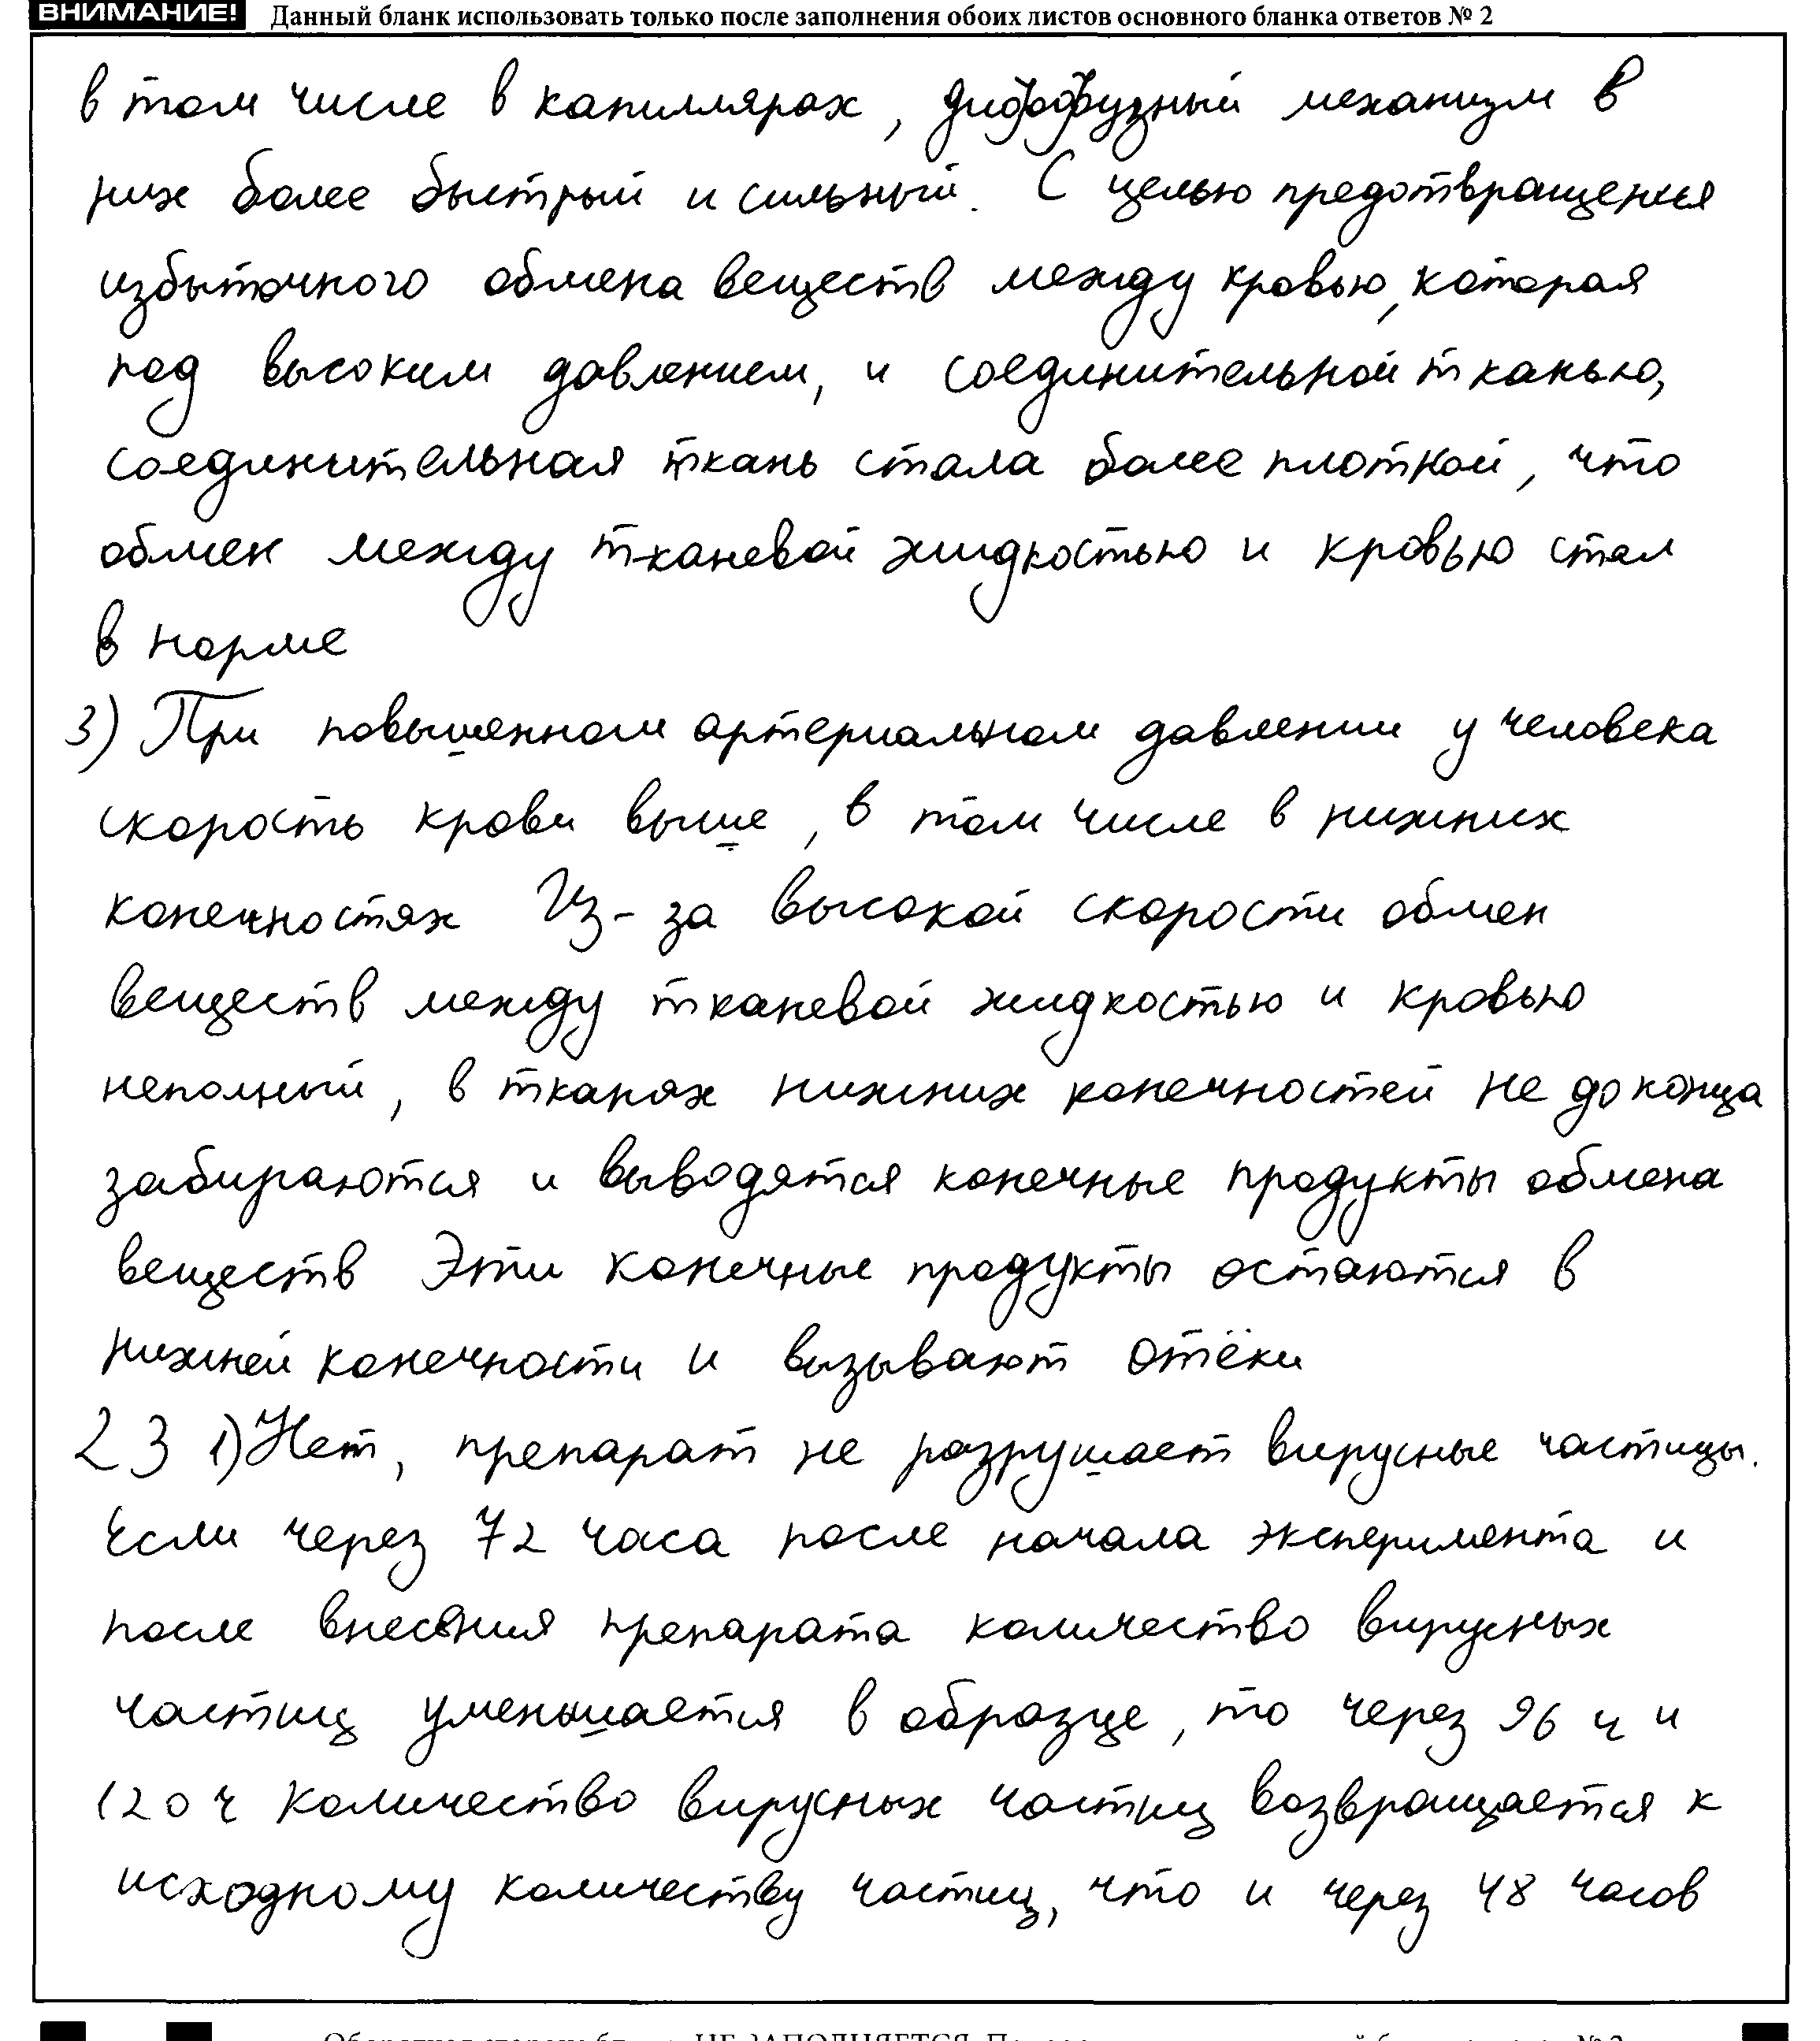 ВНИМАНИЕ! Данный бланк использовать только после заполнения обоих листов основного бланка ответов № 2
в том числе в капиллярах, диффузный механизм в
них более быстрый и сильный. С целью предотвращения
избыточного обмена веществ между кровью, которая
под высоким давлением, и соединительной тканью,
соединительная ткань стала более плотной, что
обмен между тканевой жидкостью и кровью стал
в норме
3) При повышенном артериальном давлении у человека
скорость крови выше, в том числе в нижних
конечностях Из-за высокой скорости обмен
веществ между тканевой жидкостью и кровью
неполный, в тканях нижних конечностей не до конца
забираются и выводятся конечные продукты обмена
веществ Эти конечные продукты остаются в
нижней конечности и вызывают отёки
23 1) Нет, препарат не разрушает вирусные частицы.
Если через 72 часа после начала эксперимента и
после внесения препарата количество вирусных
частиц уменьшается в образце, то через 96 ч и
120 ч количество вирусных частиц возвращается к
исходному количеству частиц, что и через 48 часов